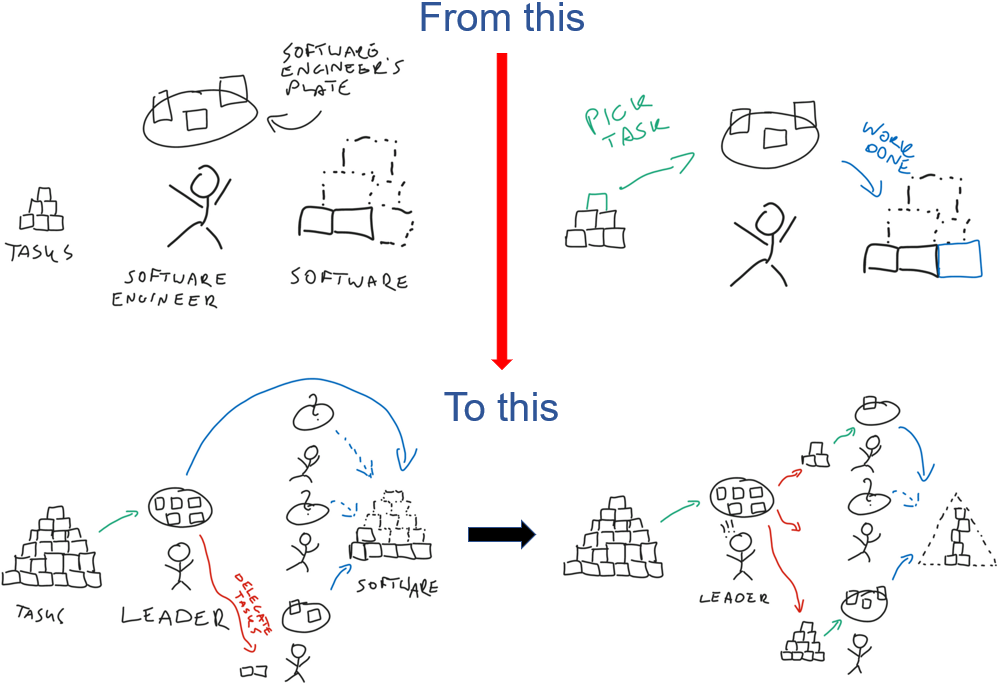 From this
SOFTWARE
ENGINEER'S
PLATE
TASKS
SOFTWARE
ENGINEER
SOFTWARE
PICK
TASK
WORK
DONE
To this
?
?
TASKS
LEADER
DELEGATE
TASKS
SOFTWARE
?
!!!
LEADER